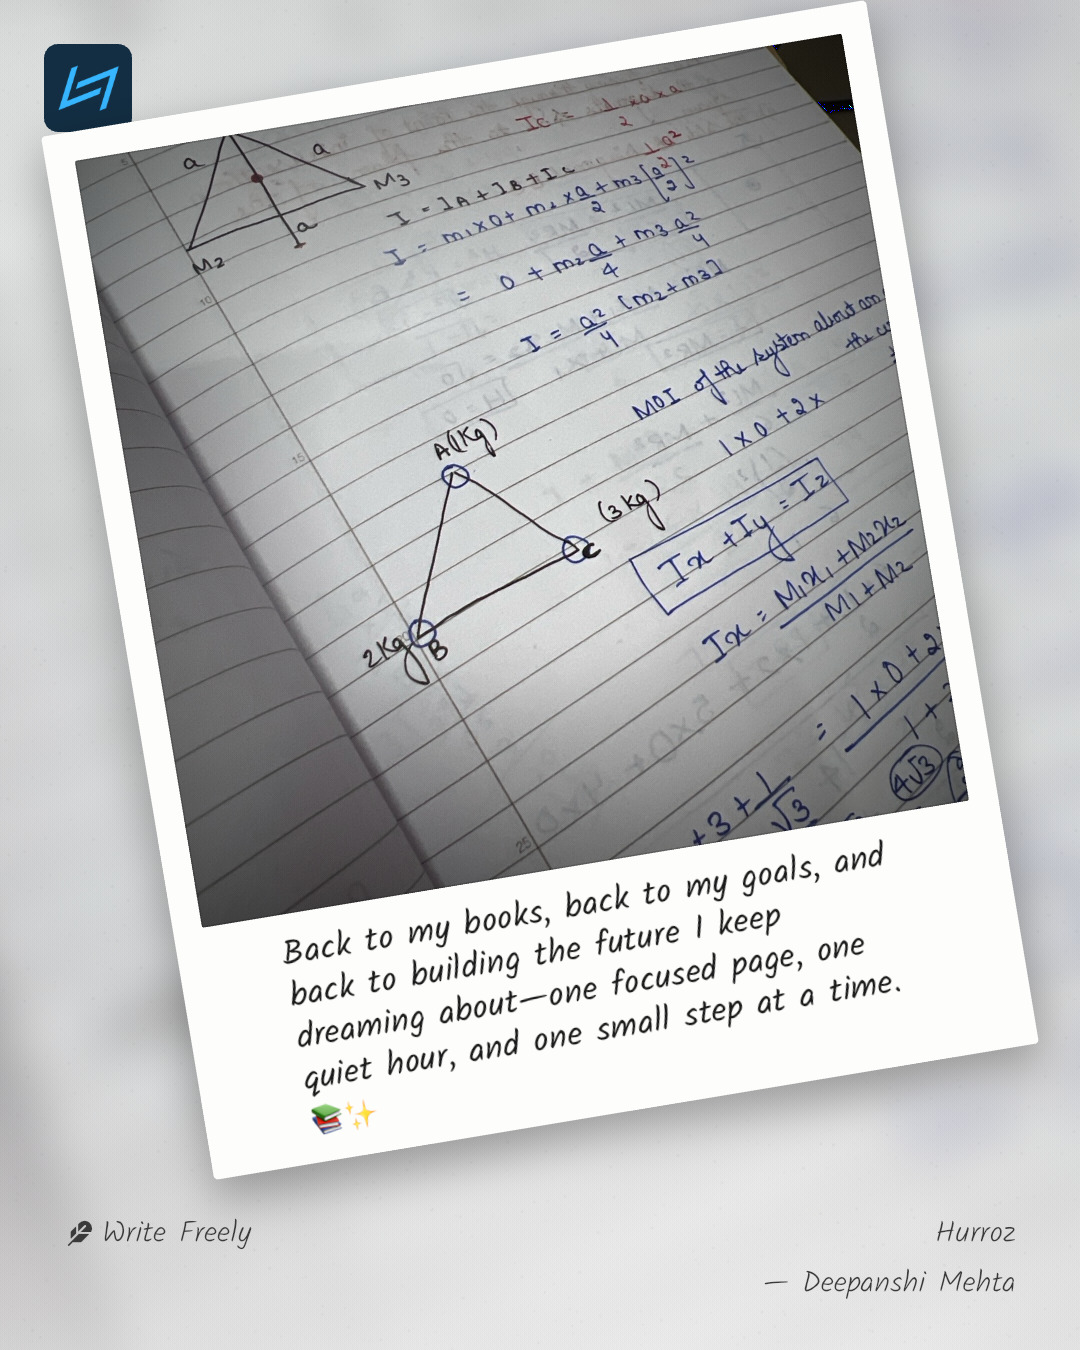 a
a
M3
M2
a
Ic = 1/2 × a × a
I = IA + IB + Ic
I = m1x0 + m2 x a/2 + m3 [a2/2]2
= 0 + m2 a/4 + m3 a2/4
I = a2/4 [m2+m3]
10
MOI of the system about an
the
1x0 + 2x
15
A(1Kg)
(3Kg)
C
2Kg
B
Ix + Iy = Iz
Ix = M1x1 + M2x2 / M1 + M2
= 1x0 + 2 / 1 +
4√3
+3+1/√3
25
Back to my books, back to my goals, and
back to building the future I keep
dreaming about—one focused page, one
quiet hour, and one small step at a time.
📚✨
Write Freely
Hurroz
— Deepanshi Mehta